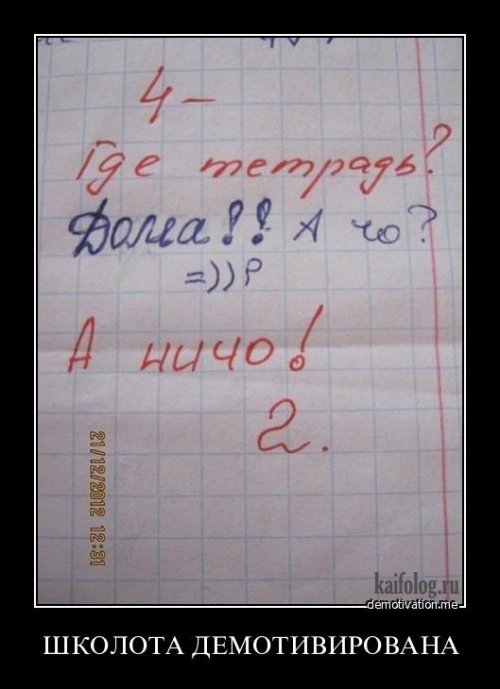 4-
Где тетрадь?
Дома!! А чо?
=))P
А ничо!
2.
21/12/2012 12:31
kaifolog.ru
demotivation.me
ШКОЛОТА ДЕМОТИВИРОВАНА